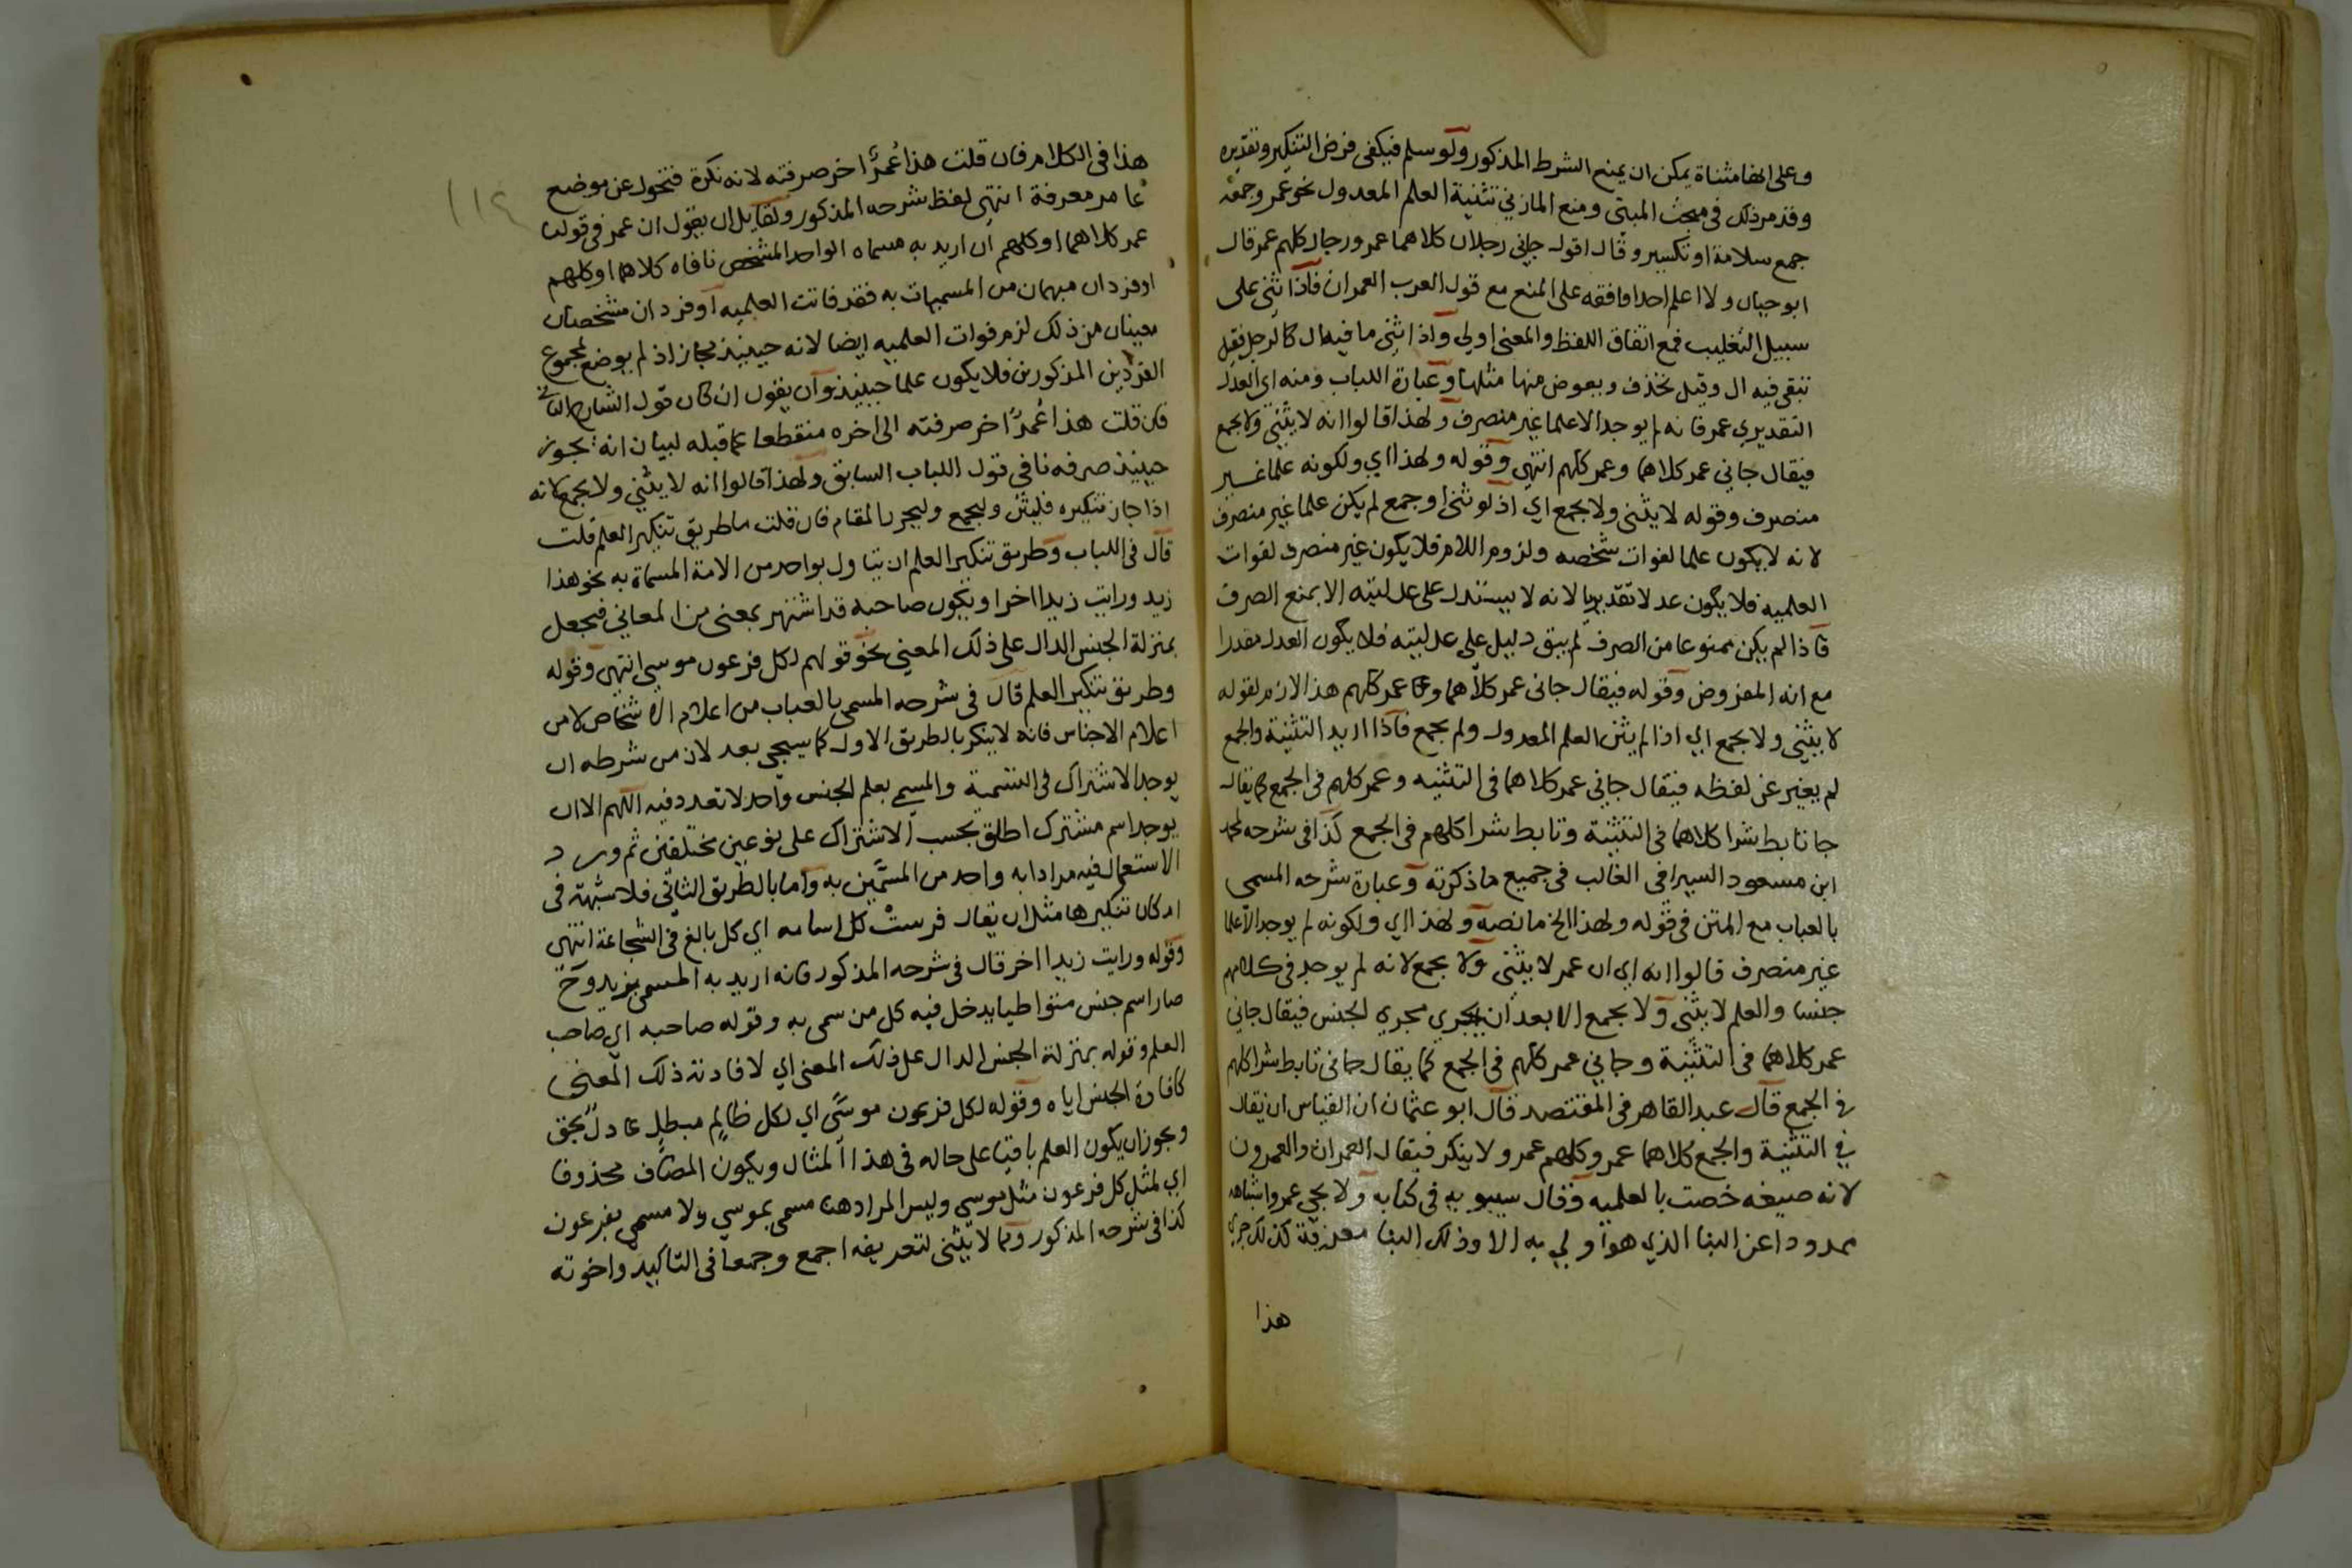 وعلى انها مثناة يمكن ان يمنع الشرط المذكور ولو سلم فيكفى فرض التنكير وتقديره
وقد مر ذلك فى مبحث المبنى ومنع المازني تثنية العلم المعدول نحو عمر وجمعه
جمع سلامة او تكسير وقال اقول جاني رجلان كلاهما عمر ورجال كلهم عمر قال
ابو حيان ولا اعلم احدا وافقه على المنع مع قول العرب العمران فاذا ثنى على
سبيل التغليب فمع اتفاق اللفظ والمعنى اولى واذا ثنى ما فيه ال كالرجل فقيل
تبقى فيه ال وقيل تحذف ويعوض منها مثلها وعبارة اللباب ومنه اي العدل
التقديري عمر فانه لم يوجد الا علما غير منصرف ولهذا قالوا انه لا يثنى ولا يجمع
فيقال جاني عمر كلاهما وعمر كلهم انتهى وقوله ولهذا اي ولكونه علما غير
منصرف وقوله لا يثنى ولا يجمع اي اذ لو ثنى او جمع لم يكن علما غير منصرف
لانه لا يكون علما لفوات شخصه ولزوم اللام فلا يكون غير منصرف لفوات
العلميه فلا يكون عدلا تقديريا لانه لا يستدل على عدليته الا بمنع الصرف
فاذا لم يكن ممنوعا من الصرف لم يبق دليل على عدليته فلا يكون العدل مقدرا
مع انه المفروض وقوله فيقال جانى عمر كلاهما وجا عمر كلهم هذا لازم لقوله
لا يثنى ولا يجمع اي اذا لم يثن العلم المعدول ولم يجمع فاذا اريد التثنية والجمع
لم يغير عن لفظه فيقال جاني عمر كلاهما فى التثنيه وعمر كلهم فى الجمع كما يقال
جا تابط شرا كلاهما فى التثنية وتابط شرا كلهم فى الجمع كذا فى شرحه لمحمد
ابن مسعود السيرافي الغالب فى جميع ما ذكرته وعبارة شرحه المسمى
بالعباب مع المتن فى قوله ولهذا الخ ما نصه ولهذا اي ولكونه لم يوجد الا علما
غير منصرف قالوا انه اي ان عمر لا يثنى ولا يجمع لانه لم يوجد فى كلامهم
جنسا والعلم لا يثنى ولا يجمع الا بعد ان يجري مجري الجنس فيقال جاني
عمر كلاهما فى التثنية وجاني عمر كلهم فى الجمع كما يقال جانى تابط شرا كلهم
فى الجمع قال عبد القاهر فى المقتصد قال ابو عثمان ان القياس ان يقال
في التثنية والجمع كلاهما عمر وكلهم عمر ولا ينكر فيقال العمران والعمرون
لانه صيغه خصت بالعلميه وقال سيبويه فى كتابه ولا يجي عمر واشباهه
محدودا عن البنا الذي هو اولي به الا وذلك البنا معرفة كذلك جرى
هذا
١١٤
هذا فى الكلام فان قلت هذا عُمرٌ اخر صرفته لانه نكرة فتحول عن موضع
عامر معرفة انتهى لفظ شرحه المذكور ولقايل ان يقول ان عمر فى قولنا
عمر كلاهما او كلهم ان اريد به مسماه الواحد المشخص نافاه كلاهما او كلهم
او فردان مبهمان من المسميات به فقد فاتت العلميه او فردان مشخصان
معينان من ذلك لزم فوات العلميه ايضا لانه حينيذ مجاز اذ لم يوضع لمجموع
الفردين المذكورين فلا يكون علما حينيذ وان يقول ان كان قول الشارح الثاني
فان قلت هذا عُمرٌ اخر صرفته الى اخره منقطعا عما قبله لبيان انه يجوز
حينيذ صرفه نافى قول اللباب السابق ولهذا قالوا انه لا يثنى ولا يجمع لانه
اذا جاز تنكيره فليثن وليجمع وليجر بالمقام فان قلت ما طريق تنكير العلم قلت
قال فى اللباب وطريق تنكير العلم ان يتاول بواحد من الامة المسماة به نحو هذا
زيد ورايت زيدا اخر او يكون صاحبه قد اشتهر بمعنى من المعاني فيجعل
بمنزلة الجنس الدال على ذلك المعنى نحو قولهم لكل فرعون موسى انتهى وقوله
وطريق تنكير العلم قال فى شرحه المسمى بالعباب من اعلام الاشخاص لا من
اعلام الاجناس فانه لا ينكر بالطريق الاول كما سيجى بعد لان من شرطه ان
يوجد الاشتراك فى التسمية والمسمى بعلم الجنس واحد لا تعدد فيه اللهم الا ان
يوجد اسم مشترك اطلق بحسب الاشتراك على نوعين مختلفين ثم ورد
الاستعمال فيه مرادا به واحد من المسمين به واما بالطريق الثاني فلا شبهة فى
امكان تنكيرها مثل ان يقال فرستُ كل اسامه اي كل بالغ فى الشجاعة انتهى
وقوله ورايت زيدا اخر قال فى شرحه المذكور فانه اريد به المسمى بزيد وح
صار اسم جنس متواطيا يدخل فيه كل من سمى به وقوله صاحبه اي صاحب
العلم وقوله بمنزلة الجنس الدال على ذلك المعنى اي لافادته ذلك المعنى
كافادة الجنس اياه وقوله لكل فرعون موسًى اي لكل ظالم مبطلٍ عادل محق
ويجوز ان يكون العلم باقيا على حاله فى هذا المثال ويكون المضاف محذوفا
اي لمثل كل فرعون مثل موسى وليس المراد هنا مسمى بموسى ولا مسمى بفرعون
كذا فى شرحه المذكور ومما لا يثنى لتعريفه اجمع وجمعا فى التاكيد واخوته